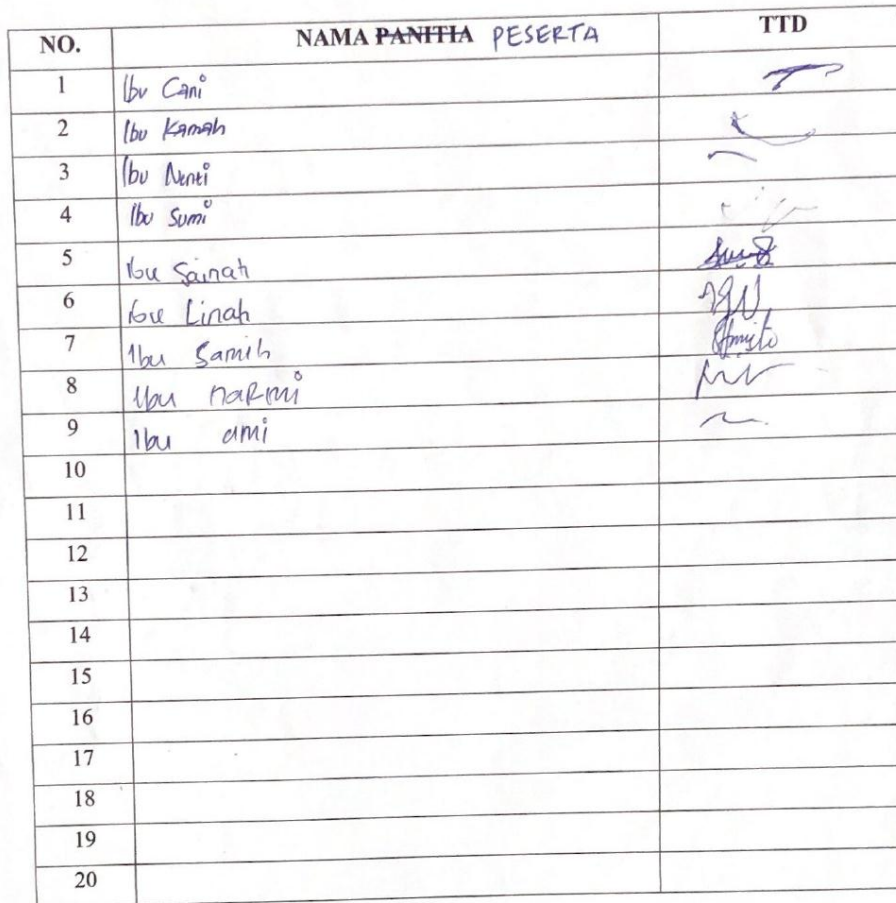 NO. NAMA PANITIA PESERTA TTD
1 Ibu Cani
2 Ibu Kamah
3 Ibu Nenti
4 Ibu Sumi
5 Ibu Sainah
6 Ibu Linah
7 Ibu Samih
8 Ibu NARMi
9 Ibu ami
10
11
12
13
14
15
16
17
18
19
20